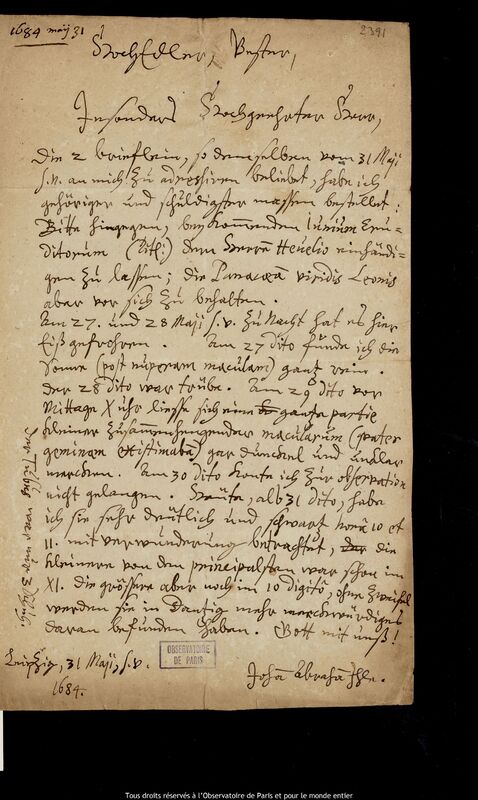 1684 maij 31
2391
HochEdler, Vester,
Insonders Hochgeehrter Herr,
Die 2 brieflein, so demselben vom 31 Maji
s.v. an mich zu adressiren beliebet, habe ich
gehöriger und schuldigster massen bestellet:
Bitte hingegen, beykommenden Junium Eru-
ditorum (Tit:) dem Herrn Hevelio einhändi-
gen zu lassen; die Panacæa viridis Leonis
aber vor sich zu behalten.
Am 27. und 28 Maji s.v. zu Nacht hat es hier
Eiß gefrohren. Am 27 dito funde ich die
Sonne (post nuperam maculam) gantz rein.
Der 28 dito war trübe. Am 29 dito vor
Mittage X uhr liesse sich eine gantze partie
kleiner zusammenhengender macularum (frater
geminam existimabat) gar dunckel und unklar
mercken. Am 30 dito konte ich zur observation
nicht gelangen. Heute, alß 31 dito, habe
ich sie sehr deutlich und schwartz horâ 10 et
11. mit verwunderung betrachtet, die
kleinere von den principalsten war schon im
XI. die grössere aber noch im 10 digitô, ohne Zweifel
werden sie in Dantzig mehr merckwürdiges
daran befunden haben. Gott mit unß!
Leipzig, 31 Maji, s.v.
1684.
Johañ Abraham Ihle.
OBSERVATOIRE
DE PARIS
Tous droits réservés à l'Observatoire de Paris et pour le monde entier